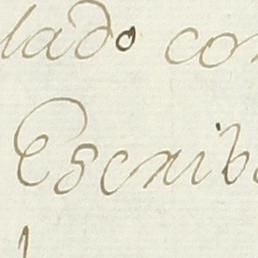 lado con
Escrib